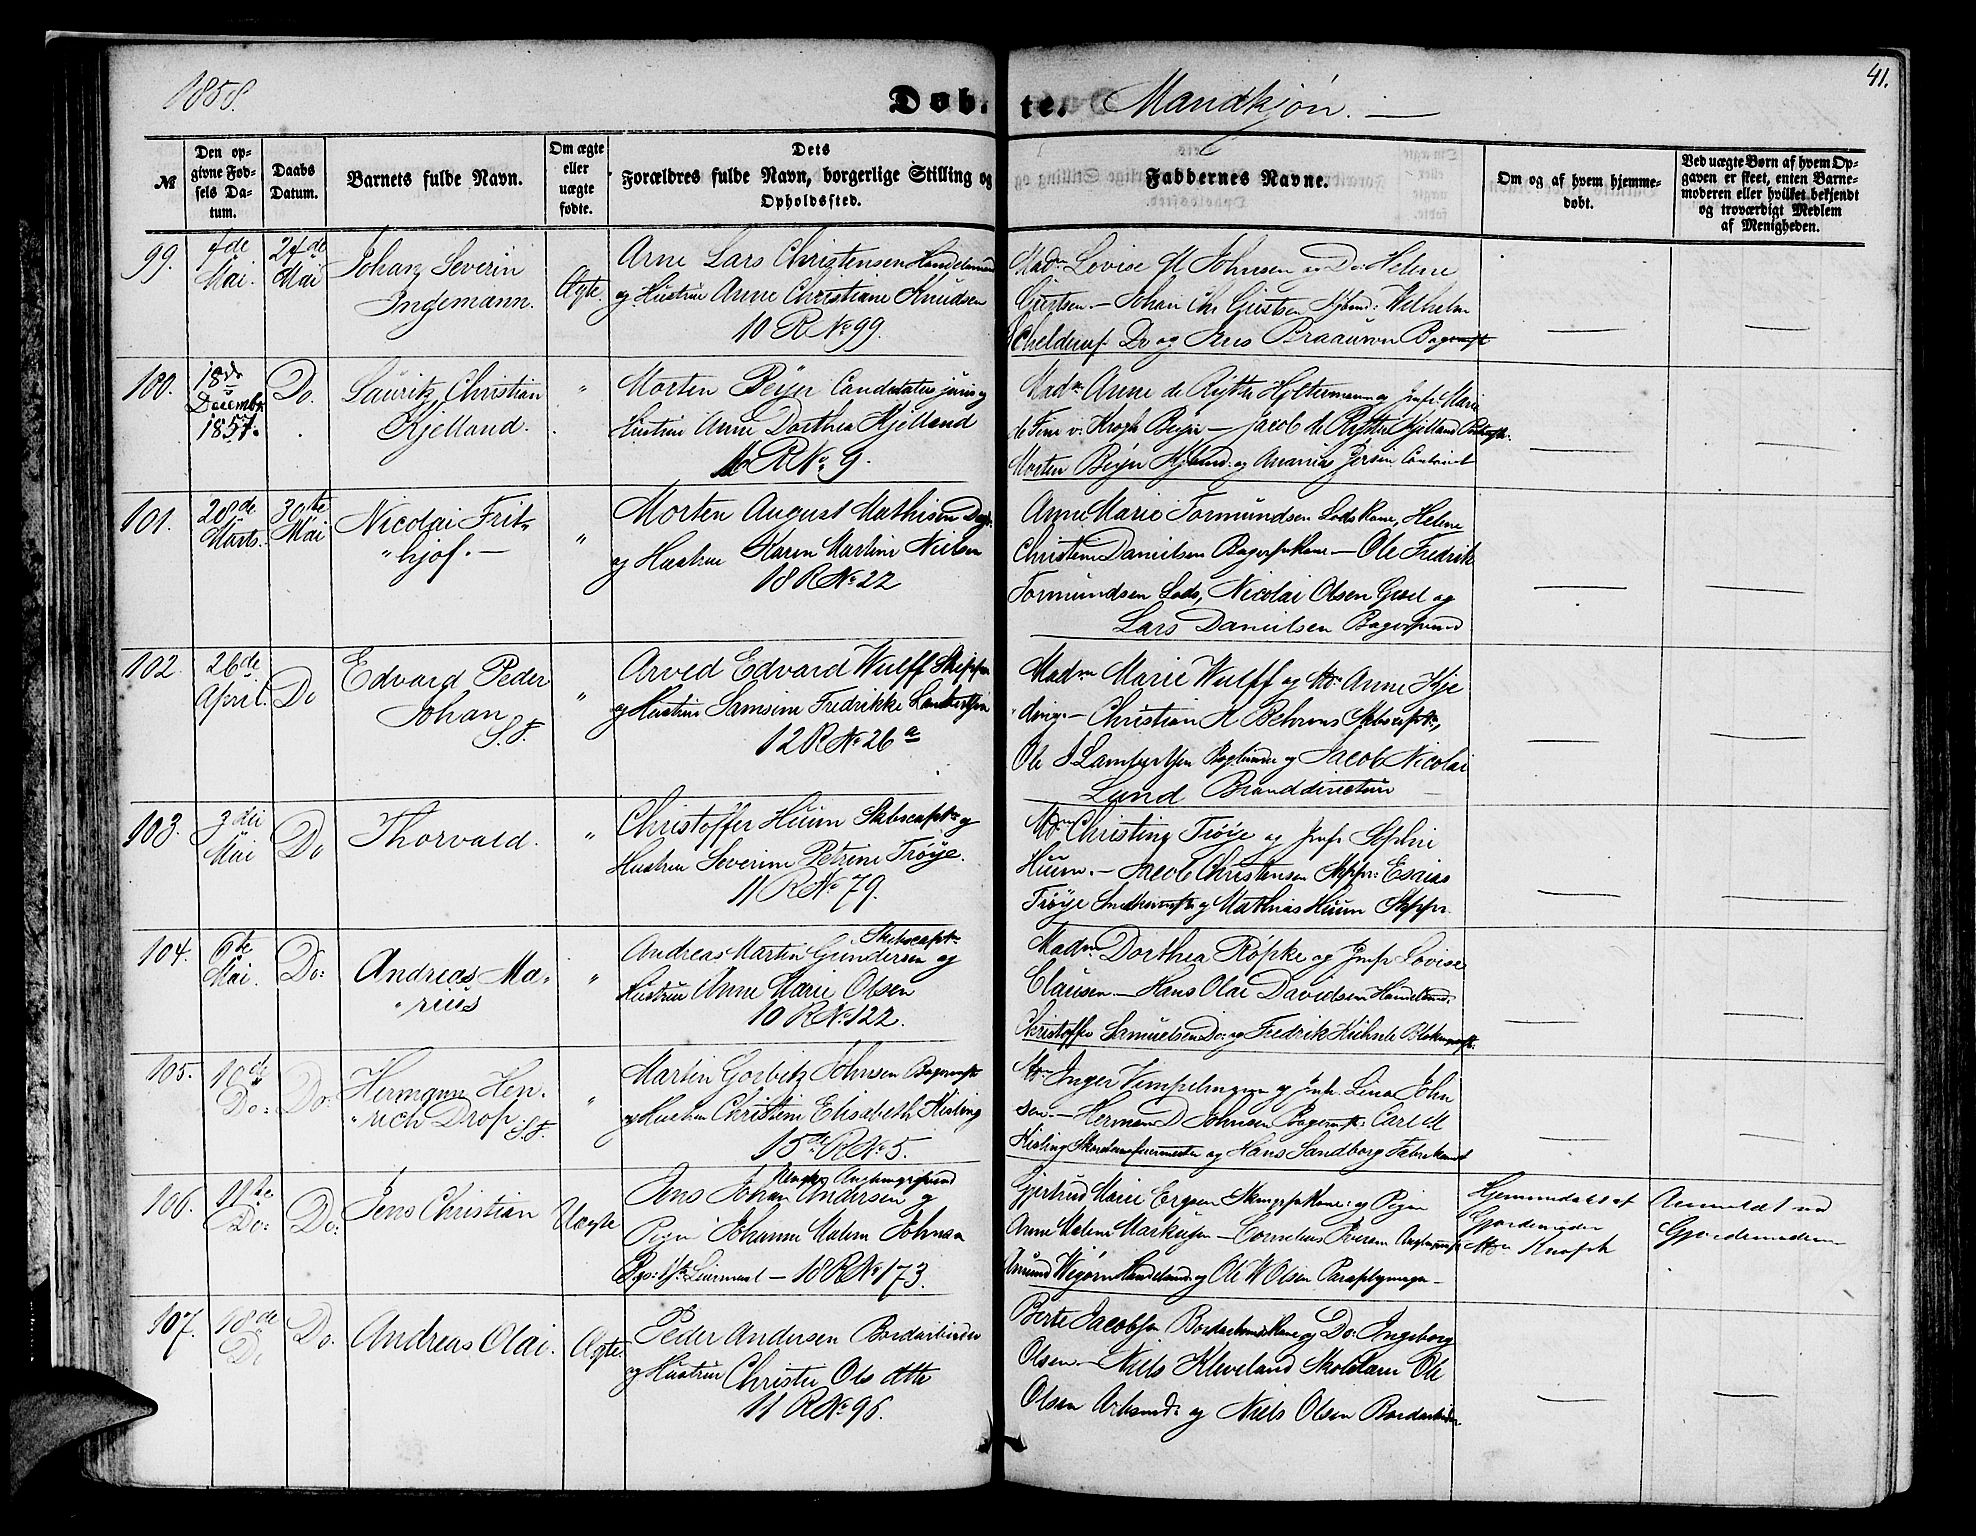 1858.
Døbte.
Mandkjøn. —
41.
№
Den opgivne Fødsels Datum.
Daabs Datum.
Barnets fulde Navn.
Om ægte eller uægte fødte.
Dets Forældres fulde Navn, borgerlige Stilling og Opholdssted.
Faddernes Navne.
Om og af hvem hjemmedøbt.
Ved uægte Børn af hvem Opgaven er skeet, enten Barnemoderen eller hvilket bekjendt og troværdigt Medlem af Menigheden.
99.
4de Mai.
24de Mai
Johan Severin
Ingemann.
Ægte.
Arne Lars Christensen Handelsmand
og Hustrue Anne Christiane Knudsen
10 R No 99.
Madm Lovise M Johnsen og Do Helene
Gjertsen — Johan Chr Gjertsen Kjbmd: Wilhelm
Schelderup Do og Jens Braaurn
100.
18de Decembr 1857.
Do.
Lauritz Christian
Kjelland.
"
Morten Beyer Candidatus juris og
Hustrue Anne Dorthea Kjelland
16 R No 9.
Madm Anne de Rytter Holtermann og Jmfr Marie
Krogh Beyer — Jacob de Rytter Kjelland
Morten Beyer Kjbmd: og Ananias
101.
28de Marts.
30te Mai
Nicolai Frit-
"hjof. —
"
Morten August Mathisen
og Hustrue Karen Martine Nielsen
18 R No 22
Anne Marie Tormundsen Lods Kone, Helene
Christine Danielsen Bagersv Kone — Ole Fredrik
Tormundsen Lods, Nicolai Olsen og
Lars Danielsen Bagersvend
102.
26de April.
Do
Edvard Peder
Johan
S. F.
"
Arved Edvard Wulff Skipper
og Hustrue Samsine Fredrikke Lambertsen
12 R No 26 a
Madm Marie Wulff og Anne Kje
ding — Christian A Behrens Skbscapt:,
Ole J Lambertsen og Jacob Nicolai
Lund Branddirecteur
103.
3die Mai
Do
Thorvald.
"
Christoffer Huun Skbscapt: og
Hustrue Severine Petrine Trøye.
11 R No 79.
Christine Trøye og Jmfr Sophie
Huun. — Jacob Christensen Skppr: Esaias
Trøye og Mathias Huun Skppr.
104.
6te Mai.
Do:
Andreas Ma-
"rius
"
Skibscapt:
Andreas Martin Gundersen og
Hustrue Anne Marie Olsen
10 R No 122.
Madm Dorthea Røpke og Jmfr Lovise
Clausen. — Hans Olai Davidsen Handelsmd:
Christoffer Samuelsen Do: og Fredrik
105.
10de Do:
Do:
Hermann Hen-
"rich Drop. S. F.
"
Martin Gorbitz Johnsen Bagermst:
og Hustrue Christine Elisabeth Kisling
15de R No 5.
Inger Vimpelmann og Jmfr Lina John
sen. — Herman D Johnsen Bagermst: Carl M
Kisling Skorstensfeiermester og Hans Sandborg Fabrikant
106.
11te Do:
Do:
Jens Christian
Uægte
Jens Johan Andersen og
Pigen Johanne Malene Johnsen
— 18 R No 173.
Gjertrud Marie Kone: og Pigen
Anne Malene Markusen — Cornelius Iversen
Handelsmd: og Ole W Olsen Paraplymager —
Hjemmedøbt af
Gjordemoder
Knoph
Anmeldt ved
Gjordemoderen
107.
18de Do
Do.
Andreas Olai.
Ægte.
Peder Andersen Bordarbeider
og Hustrue Christie Olsdatter
11 R No 96.
Berte Jacobsen Kone og Do: Ingeborg
Olsen — Niels Kleveland Skolelærer Ole
Olsen Arbmd: og Niels Olsen Bordarbeider